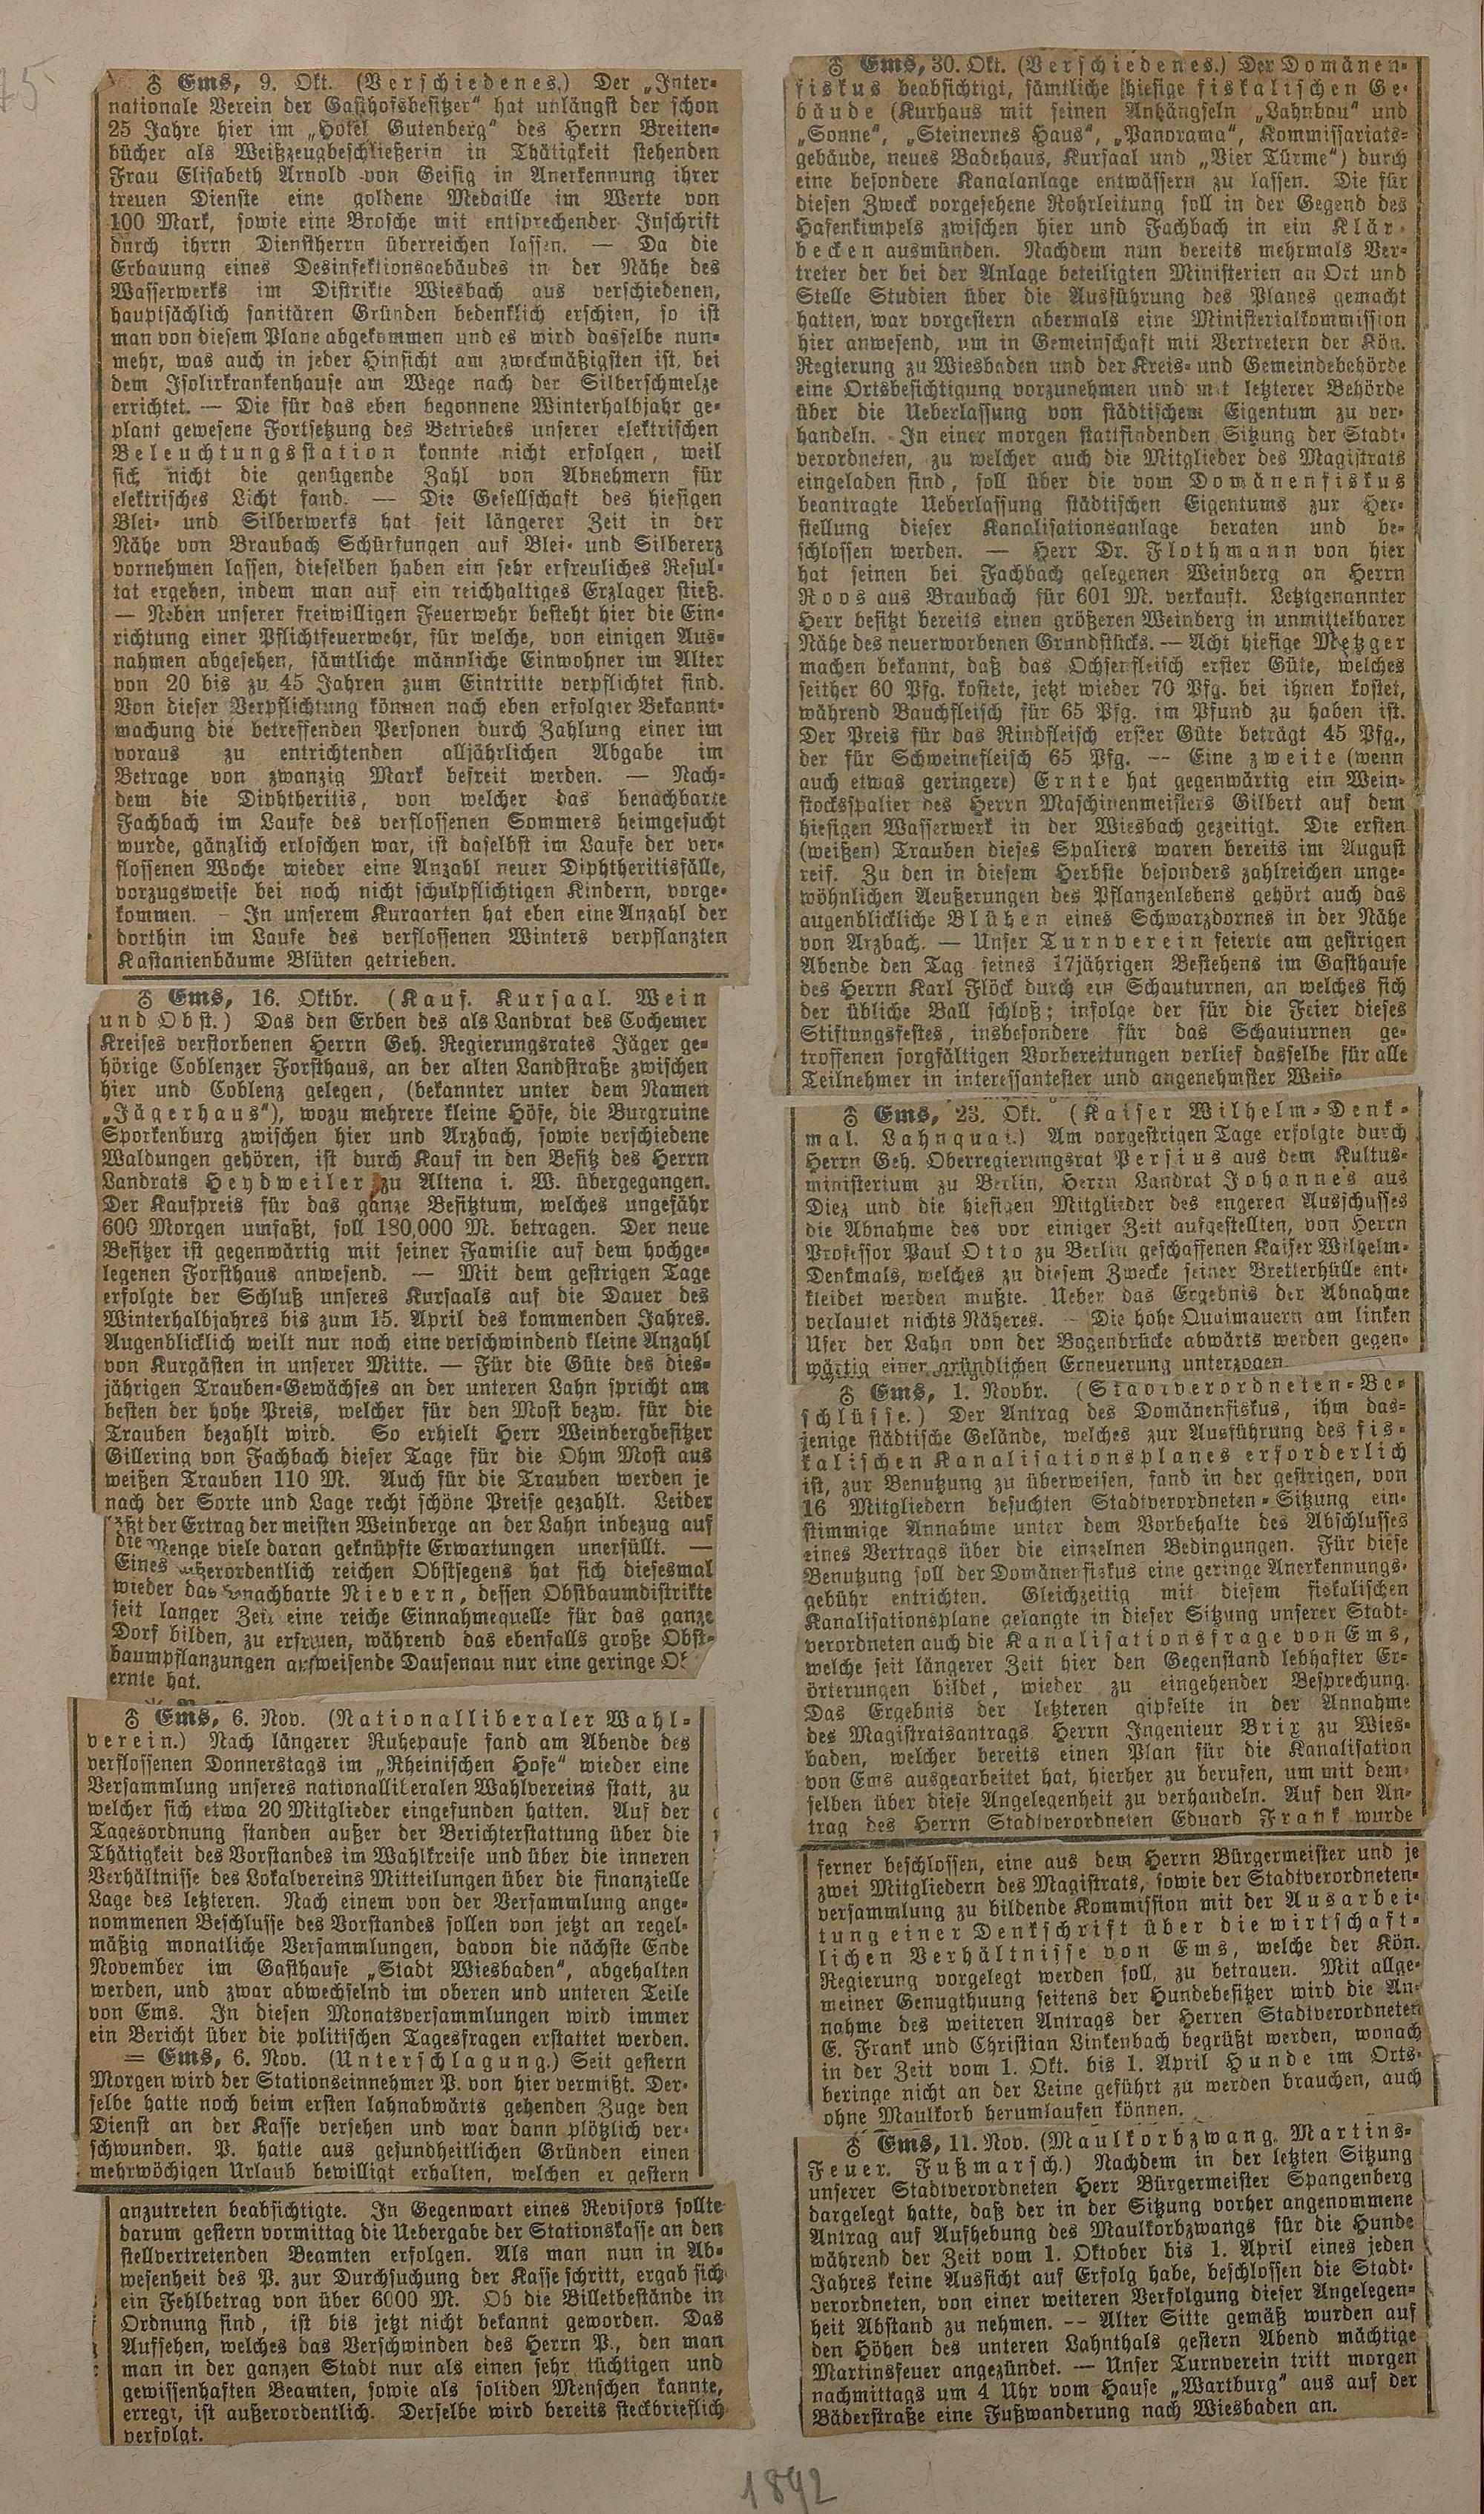 75
♁ Ems, 9. Okt. (Verschiedenes.) Der „Inter-
nationale Verein der Gasthofsbesitzer“ hat unlängst der schon
25 Jahre hier im „Hotel Gutenberg“ des Herrn Breiten-
bücher als Weißzeugbeschließerin in Thätigkeit stehenden
Frau Elisabeth Arnold von Geisig in Anerkennung ihrer
treuen Dienste eine goldene Medaille im Werte von
100 Mark, sowie eine Brosche mit entsprechender Inschrift
durch ihrrn Dienstherrn überreichen lassen. — Da die
Erbauung eines Desinfektionsgebäudes in der Nähe des
Wasserwerks im Distrikte Wiesbach aus verschiedenen,
hauptsächlich sanitären Gründen bedenklich erschien, so ist
man von diesem Plane abgekommen und es wird dasselbe nun-
mehr, was auch in jeder Hinsicht am zweckmäßigsten ist, bei
dem Isolirkrankenhause am Wege nach der Silberschmelze
errichtet. — Die für das eben begonnene Winterhalbjahr ge-
plant gewesene Fortsetzung des Betriebes unserer elektrischen
Beleuchtungsstation konnte nicht erfolgen, weil
sich nicht die genügende Zahl von Abnehmern für
elektrisches Licht fand. — Die Gesellschaft des hiesigen
Blei- und Silberwerks hat seit längerer Zeit in der
Nähe von Braubach Schürfungen auf Blei- und Silbererz
vornehmen lassen, dieselben haben ein sehr erfreuliches Resul-
tat ergeben, indem man auf ein reichhaltiges Erzlager stieß.
— Neben unserer freiwilligen Feuerwehr besteht hier die Ein-
richtung einer Pflichtfeuerwehr, für welche, von einigen Aus-
nahmen abgesehen, sämtliche männliche Einwohner im Alter
von 20 bis zu 45 Jahren zum Eintritte verpflichtet sind.
Von dieser Verpflichtung können nach eben erfolgter Bekannt-
machung die betreffenden Personen durch Zahlung einer im
voraus zu entrichtenden alljährlichen Abgabe im
Betrage von zwanzig Mark befreit werden. — Nach-
dem die Diphtheritis, von welcher das benachbarte
Fachbach im Laufe des verflossenen Sommers heimgesucht
wurde, gänzlich erloschen war, ist daselbst im Laufe der ver-
flossenen Woche wieder eine Anzahl neuer Diphtheritisfälle,
vorzugsweise bei noch nicht schulpflichtigen Kindern, vorge-
kommen. — In unserem Kurgarten hat eben eine Anzahl der
dorthin im Laufe des verflossenen Winters verpflanzten
Kastanienbäume Blüten getrieben.
♁ Ems, 16. Oktbr. (Kauf. Kursaal. Wein
und Obst.) Das den Erben des als Landrat des Cochemer
Kreises verstorbenen Herrn Geh. Regierungsrates Jäger ge-
hörige Coblenzer Forsthaus, an der alten Landstraße zwischen
hier und Coblenz gelegen, (bekannter unter dem Namen
„Jägerhaus“), wozu mehrere kleine Höfe, die Burgruine
Sporkenburg zwischen hier und Arzbach, sowie verschiedene
Waldungen gehören, ist durch Kauf in den Besitz des Herrn
Landrats Heydweiler zu Altena i. W. übergegangen.
Der Kaufpreis für das ganze Besitztum, welches ungefähr
600 Morgen umfaßt, soll 180,000 M. betragen. Der neue
Besitzer ist gegenwärtig mit seiner Familie auf dem hochge-
legenen Forsthaus anwesend. — Mit dem gestrigen Tage
erfolgte der Schluß unseres Kursaals auf die Dauer des
Winterhalbjahres bis zum 15. April des kommenden Jahres.
Augenblicklich weilt nur noch eine verschwindend kleine Anzahl
von Kurgästen in unserer Mitte. — Für die Güte des dies-
jährigen Trauben-Gewächses an der unteren Lahn spricht am
besten der hohe Preis, welcher für den Most bezw. für die
Trauben bezahlt wird. So erhielt Herr Weinbergbesitzer
Gillering von Fachbach dieser Tage für die Ohm Most aus
weißen Trauben 110 M. Auch für die Trauben werden je
nach der Sorte und Lage recht schöne Preise gezahlt. Leider
läßt der Ertrag der meisten Weinberge an der Lahn inbezug auf
die Menge viele daran geknüpfte Erwartungen unerfüllt. —
Eines außerordentlich reichen Obstsegens hat sich diesesmal
wieder das benachbarte Nievern, dessen Obstbaumdistrikte
seit langer Zeit eine reiche Einnahmequelle für das ganze
Dorf bilden, zu erfreuen, während das ebenfalls große Obst-
baumpflanzungen aufweisende Dausenau nur eine geringe Ob
ernte hat.
♁ Ems, 6. Nov. (Nationalliberaler Wahl-
verein.) Nach längerer Ruhepause fand am Abende des
verflossenen Donnerstags im „Rheinischen Hofe“ wieder eine
Versammlung unseres nationalliberalen Wahlvereins statt, zu
welcher sich etwa 20 Mitglieder eingefunden hatten. Auf der
Tagesordnung standen außer der Berichterstattung über die
Thätigkeit des Vorstandes im Wahlkreise und über die inneren
Verhältnisse des Lokalvereins Mitteilungen über die finanzielle
Lage des letzteren. Nach einem von der Versammlung ange-
nommenen Beschlusse des Vorstandes sollen von jetzt an regel-
mäßig monatliche Versammlungen, davon die nächste Ende
November im Gasthause „Stadt Wiesbaden“, abgehalten
werden, und zwar abwechselnd im oberen und unteren Teile
von Ems. In diesen Monatsversammlungen wird immer
ein Bericht über die politischen Tagesfragen erstattet werden.
= Ems, 6. Nov. (Unterschlagung.) Seit gestern
Morgen wird der Stationseinnehmer P. von hier vermißt. Der-
selbe hatte noch beim ersten lahnabwärts gehenden Zuge den
Dienst an der Kasse versehen und war dann plötzlich ver-
schwunden. P. hatte aus gesundheitlichen Gründen einen
mehrwöchigen Urlaub bewilligt erhalten, welchen er gestern
anzutreten beabsichtigte. In Gegenwart eines Revisors sollte
darum gestern vormittag die Uebergabe der Stationskasse an den
stellvertretenden Beamten erfolgen. Als man nun in Ab-
wesenheit des P. zur Durchsuchung der Kasse schritt, ergab sich
ein Fehlbetrag von über 6000 M. Ob die Billetbestände in
Ordnung sind, ist bis jetzt nicht bekannt geworden. Das
Aufsehen, welches das Verschwinden des Herrn P., den man
man in der ganzen Stadt nur als einen sehr tüchtigen und
gewissenhaften Beamten, sowie als soliden Menschen kannte,
erregt, ist außerordentlich. Derselbe wird bereits steckbrieflich
verfolgt.
♁ Ems, 30. Okt. (Verschiedenes.) Der Domänen-
fiskus beabsichtigt, sämtliche hiesige fiskalischen Ge-
bäude (Kurhaus mit seinen Anhängseln „Lahnbau“ und
„Sonne“, „Steinernes Haus“, „Panorama“, Kommissariats-
gebäude, neues Badehaus, Kursaal und „Vier Türme“) durch
eine besondere Kanalanlage entwässern zu lassen. Die für
diesen Zweck vorgesehene Rohrleitung soll in der Gegend des
Hafenkimpels zwischen hier und Fachbach in ein Klär-
becken ausmünden. Nachdem nun bereits mehrmals Ver-
treter der bei der Anlage beteiligten Ministerien an Ort und
Stelle Studien über die Ausführung des Planes gemacht
hatten, war vorgestern abermals eine Ministerialkommission
hier anwesend, um in Gemeinschaft mit Vertretern der Kön.
Regierung zu Wiesbaden und der Kreis- und Gemeindebehörde
eine Ortsbesichtigung vorzunehmen und mit letzterer Behörde
über die Ueberlassung von städtischem Eigentum zu ver-
handeln. In einer morgen stattfindenden Sitzung der Stadt-
verordneten, zu welcher auch die Mitglieder des Magistrats
eingeladen sind, soll über die vom Domänenfiskus
beantragte Ueberlassung städtischen Eigentums zur Her-
stellung dieser Kanalisationsanlage beraten und be-
schlossen werden. — Herr Dr. Flothmann von hier
hat seinen bei Fachbach gelegenen Weinberg an Herrn
Roos aus Braubach für 601 M. verkauft. Letztgenannter
Herr besitzt bereits einen größeren Weinberg in unmittelbarer
Nähe des neuerworbenen Grundstücks. — Acht hiesige Metzger
machen bekannt, daß das Ochsenfleisch erster Güte, welches
seither 60 Pfg. kostete, jetzt wieder 70 Pfg. bei ihnen kostet,
während Bauchfleisch für 65 Pfg. im Pfund zu haben ist.
Der Preis für das Rindfleisch erster Güte beträgt 45 Pfg.,
der für Schweinefleisch 65 Pfg. — Eine zweite (wenn
auch etwas geringere) Ernte hat gegenwärtig ein Wein-
stocksspalier des Herrn Maschinenmeisters Gilbert auf dem
hiesigen Wasserwerk in der Wiesbach gezeitigt. Die ersten
(weißen) Trauben dieses Spaliers waren bereits im August
reif. Zu den in diesem Herbste besonders zahlreichen unge-
wöhnlichen Aeußerungen des Pflanzenlebens gehört auch das
augenblickliche Blühen eines Schwarzdornes in der Nähe
von Arzbach. — Unser Turnverein feierte am gestrigen
Abende den Tag seines 17jährigen Bestehens im Gasthause
des Herrn Karl Flöck durch ein Schauturnen, an welches sich
der übliche Ball schloß; infolge der für die Feier dieses
Stiftungsfestes, insbesondere für das Schauturnen ge-
troffenen sorgfältigen Vorbereitungen verlief dasselbe für alle
Teilnehmer in interessantester und angenehmster Weise
♁ Ems, 23. Okt. (Kaiser Wilhelm-Denk-
mal. Lahnquai.) Am vorgestrigen Tage erfolgte durch
Herrn Geh. Oberregierungsrat Persius aus dem Kultus-
ministerium zu Berlin, Herrn Landrat Johannes aus
Diez und die hiesigen Mitglieder des engeren Ausschusses
die Abnahme des vor einiger Zeit aufgestellten, von Herrn
Professor Paul Otto zu Berlin geschaffenen Kaiser Wilhelm-
Denkmals, welches zu diesem Zwecke seiner Bretterhülle ent-
kleidet werden mußte. Ueber das Ergebnis der Abnahme
verlautet nichts Näheres. — Die hohe Quaimauern am linken
Ufer der Lahn von der Bogenbrücke abwärts werden gegen-
wärtig einer gründlichen Erneuerung unterzogen.
♁ Ems, 1. Novbr. (Stadtverordneten-Be-
schlüsse.) Der Antrag des Domänenfiskus, ihm das-
jenige städtische Gelände, welches zur Ausführung des fis-
kalischen Kanalisationsplanes erforderlich
ist, zur Benutzung zu überweisen, fand in der gestrigen, von
16 Mitgliedern besuchten Stadtverordneten-Sitzung ein-
stimmige Annahme unter dem Vorbehalte des Abschlusses
eines Vertrags über die einzelnen Bedingungen. Für diese
Benutzung soll der Domänenfiskus eine geringe Anerkennungs-
gebühr entrichten. Gleichzeitig mit diesem fiskalischen
Kanalisationsplane gelangte in dieser Sitzung unserer Stadt-
verordneten auch die Kanalisationsfrage von Ems,
welche seit längerer Zeit hier den Gegenstand lebhafter Er-
örterungen bildet, wieder zu eingehender Besprechung.
Das Ergebnis der letzteren gipfelte in der Annahme
des Magistratsantrags, Herrn Ingenieur Brix zu Wies-
baden, welcher bereits einen Plan für die Kanalisation
von Ems ausgearbeitet hat, hierher zu berufen, um mit dem-
selben über diese Angelegenheit zu verhandeln. Auf den An-
trag des Herrn Stadtverordneten Eduard Frank wurde
ferner beschlossen, eine aus dem Herrn Bürgermeister und je
zwei Mitgliedern des Magistrats, sowie der Stadtverordneten-
versammlung zu bildende Kommission mit der Ausarbei-
tung einer Denkschrift über die wirtschaft-
lichen Verhältnisse von Ems, welche der Kön.
Regierung vorgelegt werden soll, zu betrauen. Mit allge-
meiner Genugthuung seitens der Hundebesitzer wird die An-
nahme des weiteren Antrags der Herren Stadtverordneten
E. Frank und Christian Linkenbach begrüßt werden, wonach
in der Zeit vom 1. Okt. bis 1. April Hunde im Orts-
beringe nicht an der Leine geführt zu werden brauchen, auch
ohne Maulkorb herumlaufen können.
♁ Ems, 11. Nov. (Maulkorbzwang. Martins-
Feuer. Fußmarsch.) Nachdem in der letzten Sitzung
unserer Stadtverordneten Herr Bürgermeister Spangenberg
dargelegt hatte, daß der in der Sitzung vorher angenommene
Antrag auf Aufhebung des Maulkorbzwangs für die Hunde
während der Zeit vom 1. Oktober bis 1. April eines jeden
Jahres keine Aussicht auf Erfolg habe, beschlossen die Stadt-
verordneten, von einer weiteren Verfolgung dieser Angelegen-
heit Abstand zu nehmen. — Alter Sitte gemäß wurden auf
den Höhen des unteren Lahnthals gestern Abend mächtige
Martinsfeuer angezündet. — Unser Turnverein tritt morgen
nachmittags um 4 Uhr vom Hause „Wartburg“ aus auf der
Bäderstraße eine Fußwanderung nach Wiesbaden an.
1892